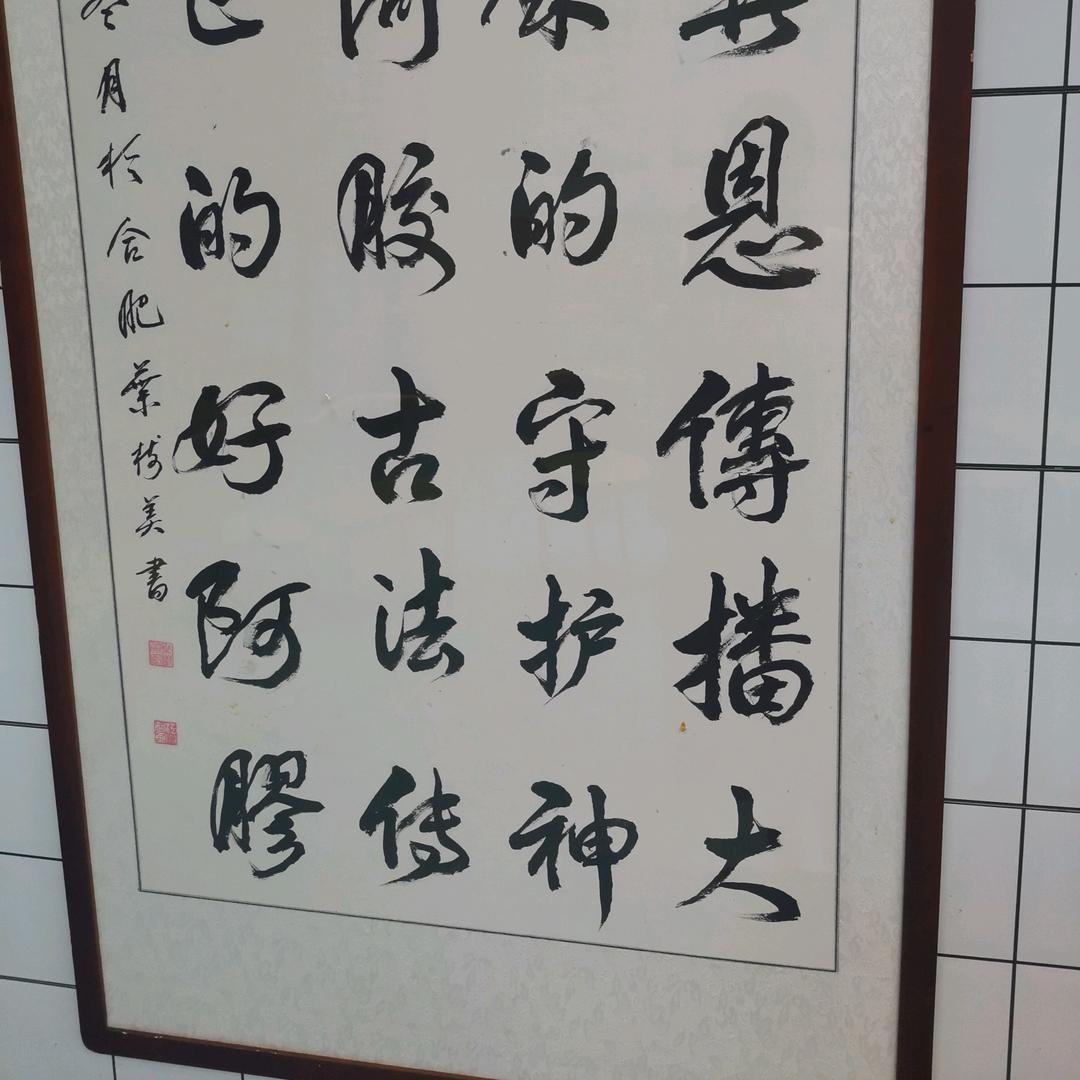 恩傳播大
的守护神
胶古法传
的好阿膠
月於合肥葉樹美書